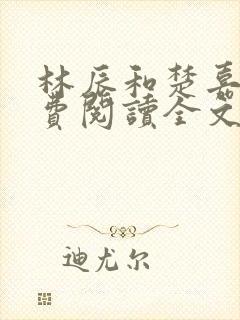 林辰和楚嘉
費閱讀全文
迪尤尔